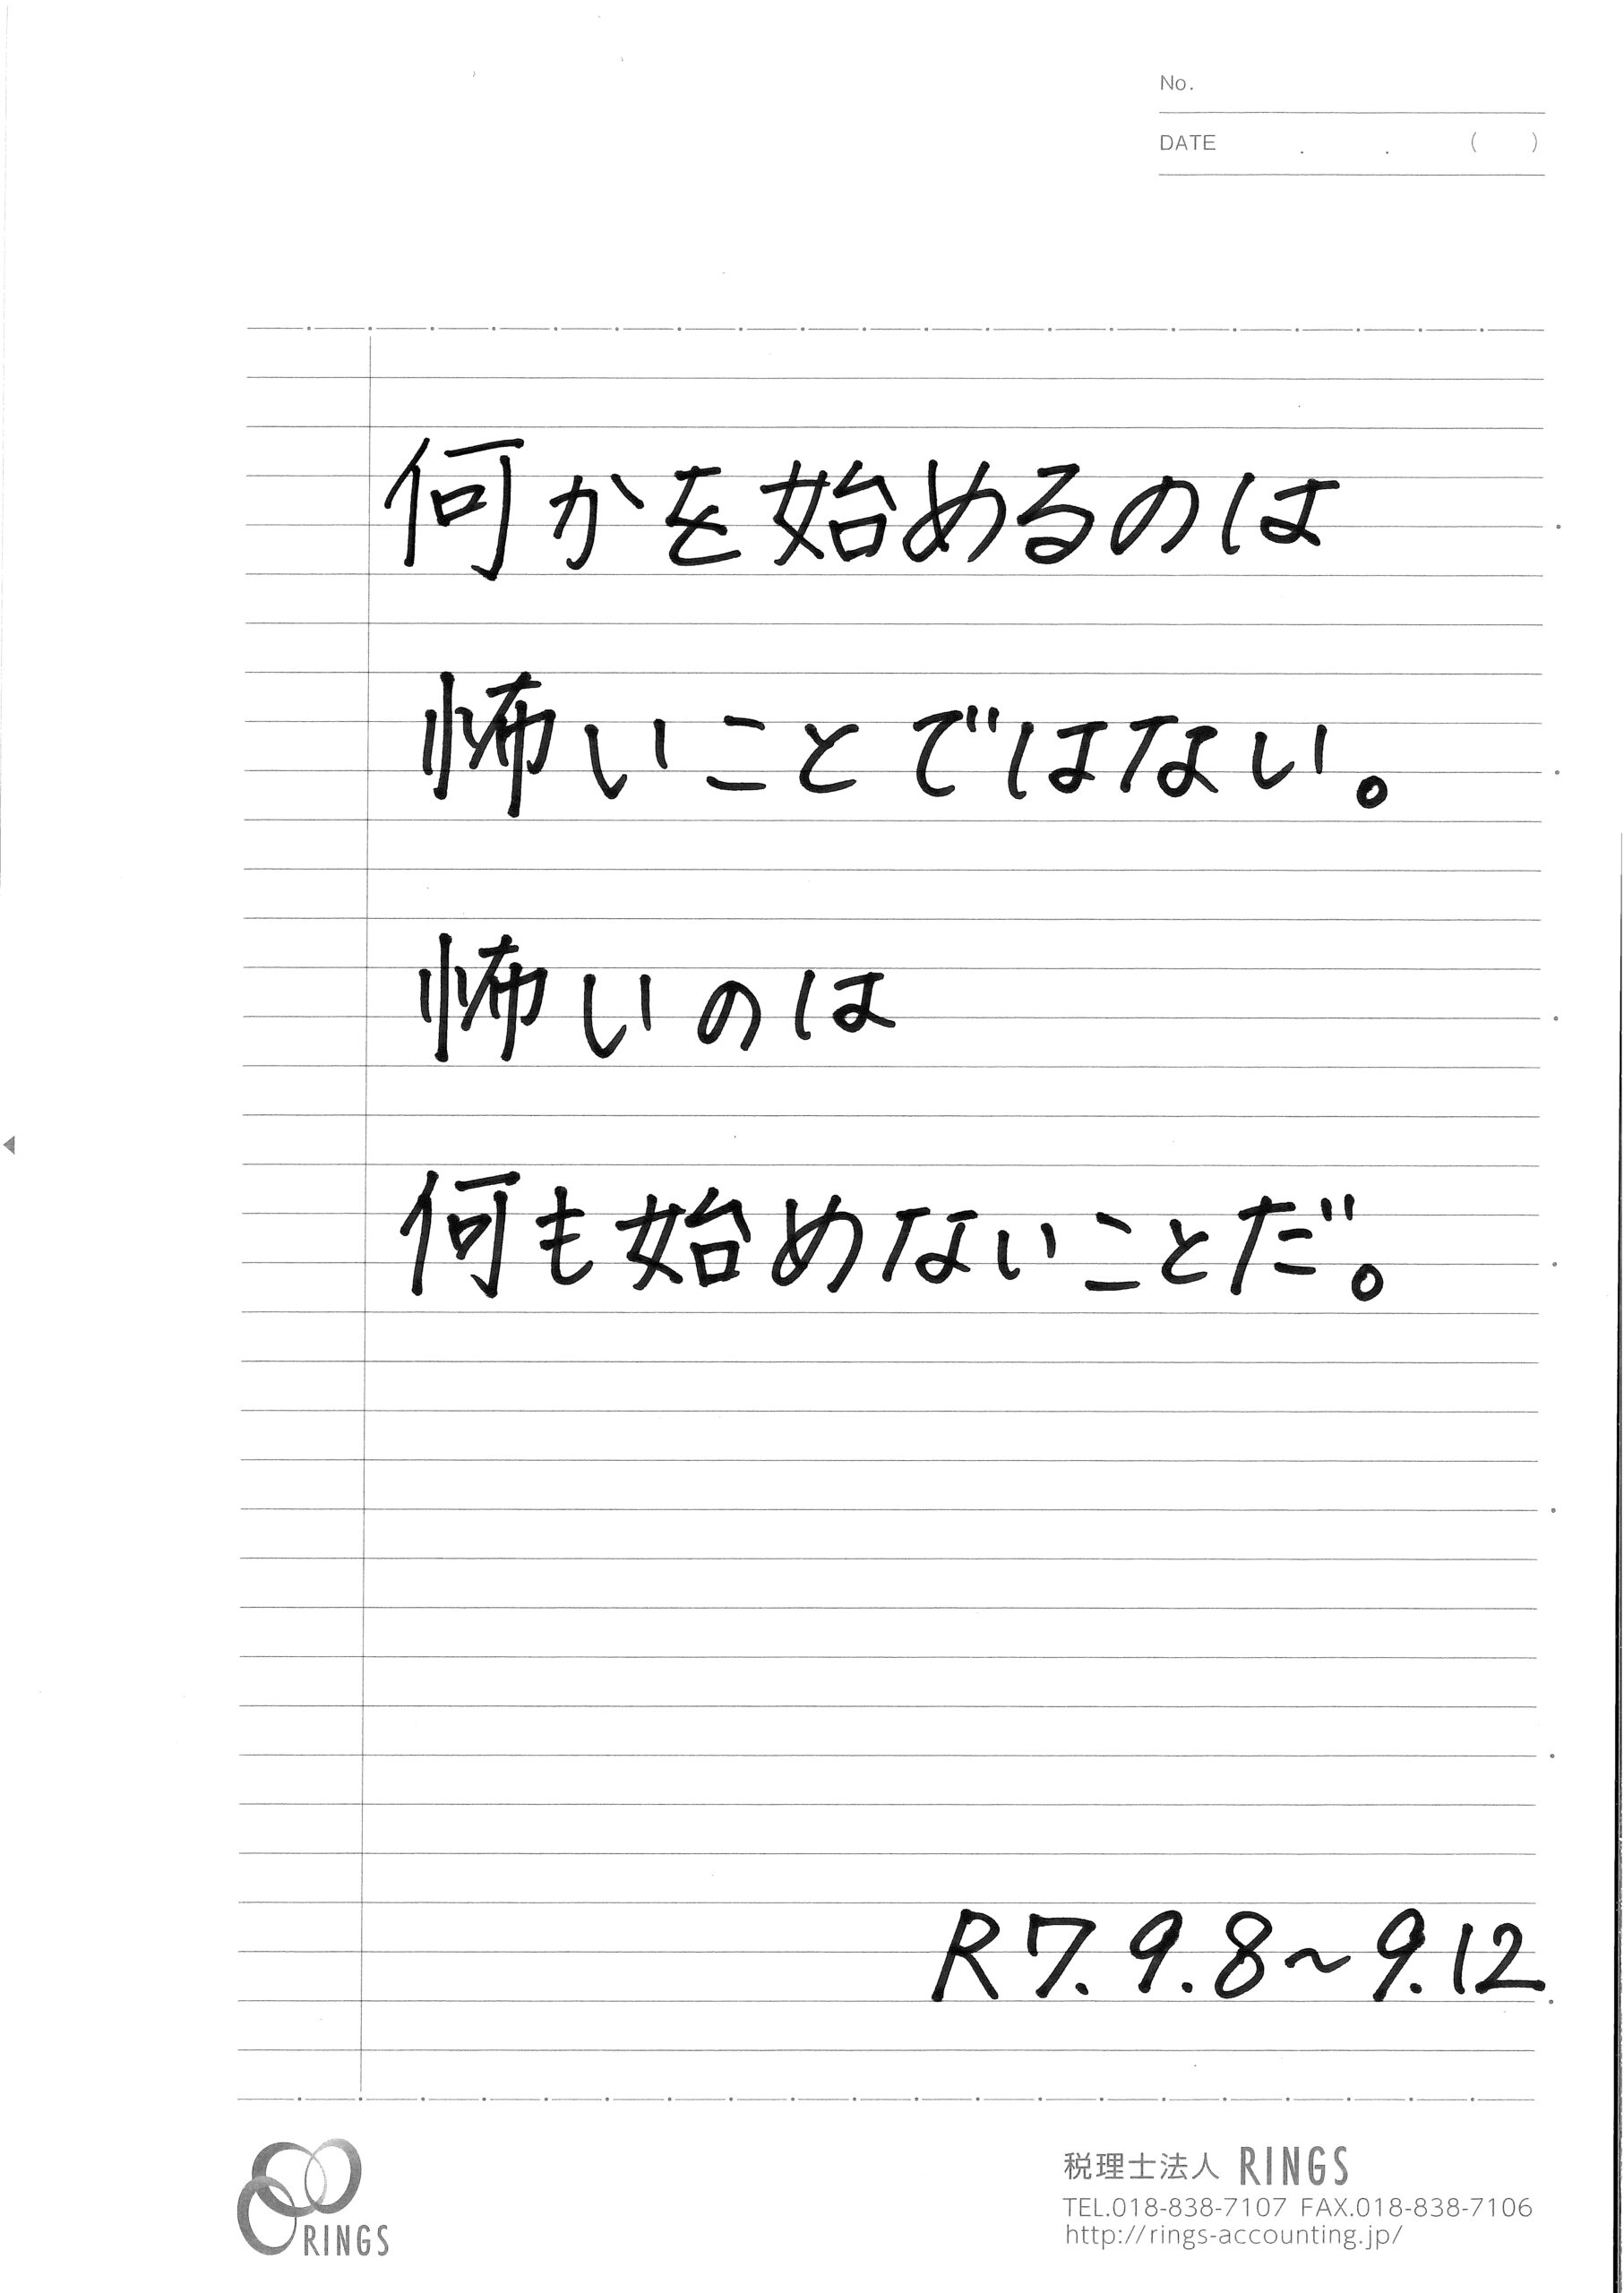 No.
DATE . . ( )
何かを始めるのは
怖いことではない。
怖いのは
何も始めないことだ。
R7.9.8～9.12
RINGS
税理士法人 RINGS
TEL.018-838-7107 FAX.018-838-7106
http://rings-accounting.jp/